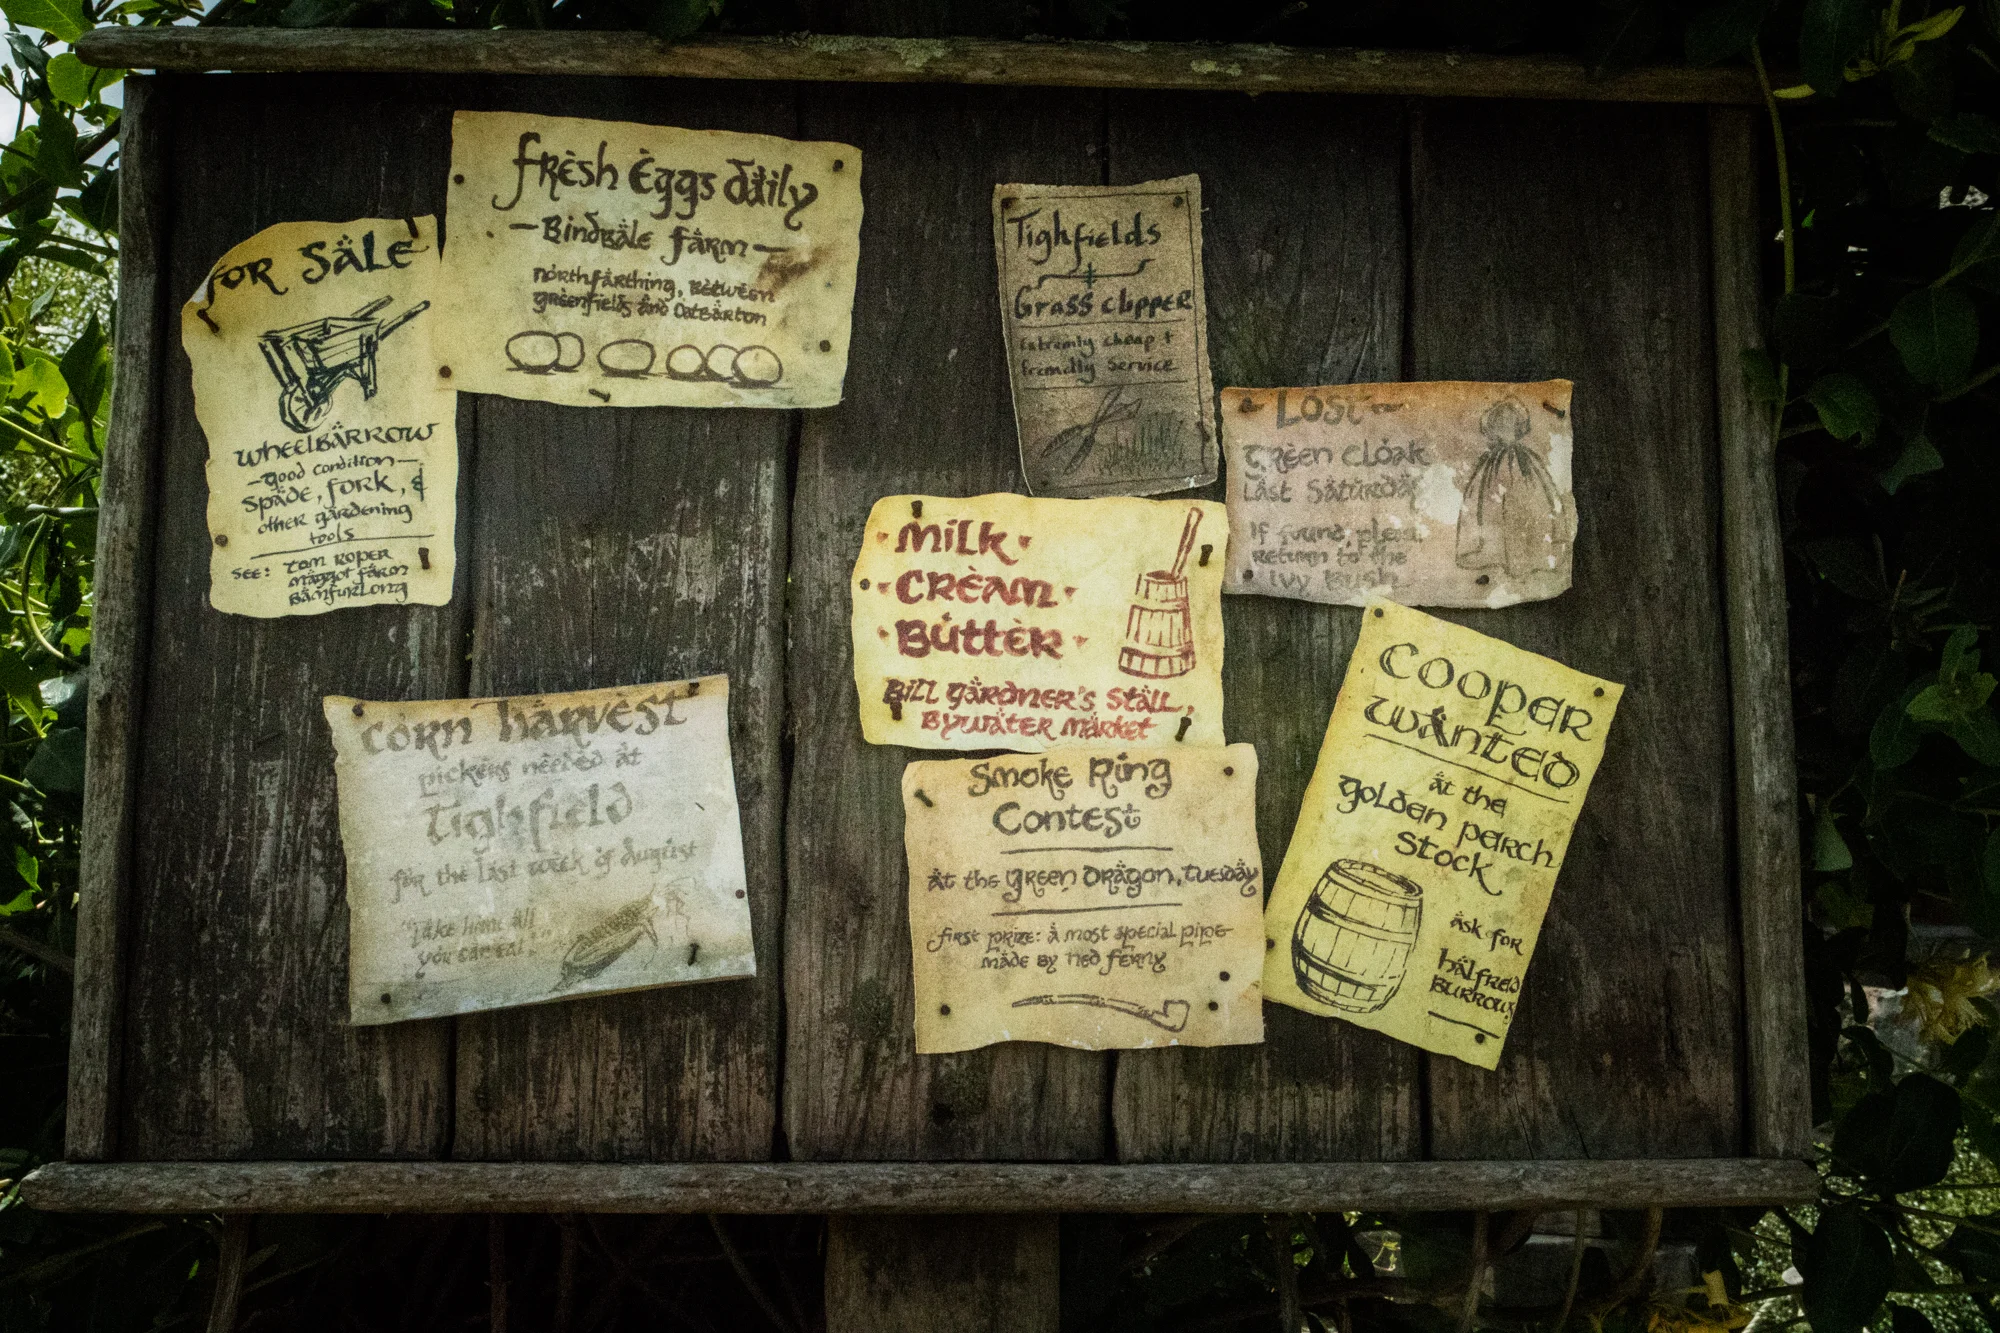 for Sale
wheelbarrow
-good condition-
spade, fork, &
other gardening
tools
see: Tom Roper
Maggot farm
Bamfurlong
fresh Eggs daily
-Bindbale farm-
Northfarthing, between
greenfields and Oatbarton
Tighfields
Grass clipper
Extremly cheap +
friendly service
-Lost-
Green cloak
Last Saturday
If found, please
return to the
Ivy Bush
Milk
Cream
Butter
Bill Gardner's Stall,
Bywater Market
Corn harvest
pickers needed at
Tighfield
for the last week of August
"Take home all
you can eat."
Smoke Ring
Contest
at the Green Dragon, Tuesday
first prize: a most special pipe
made by Ted Ferny
Cooper
Wanted
at the
Golden Perch
Stock
ask for
Halfred
Burrows